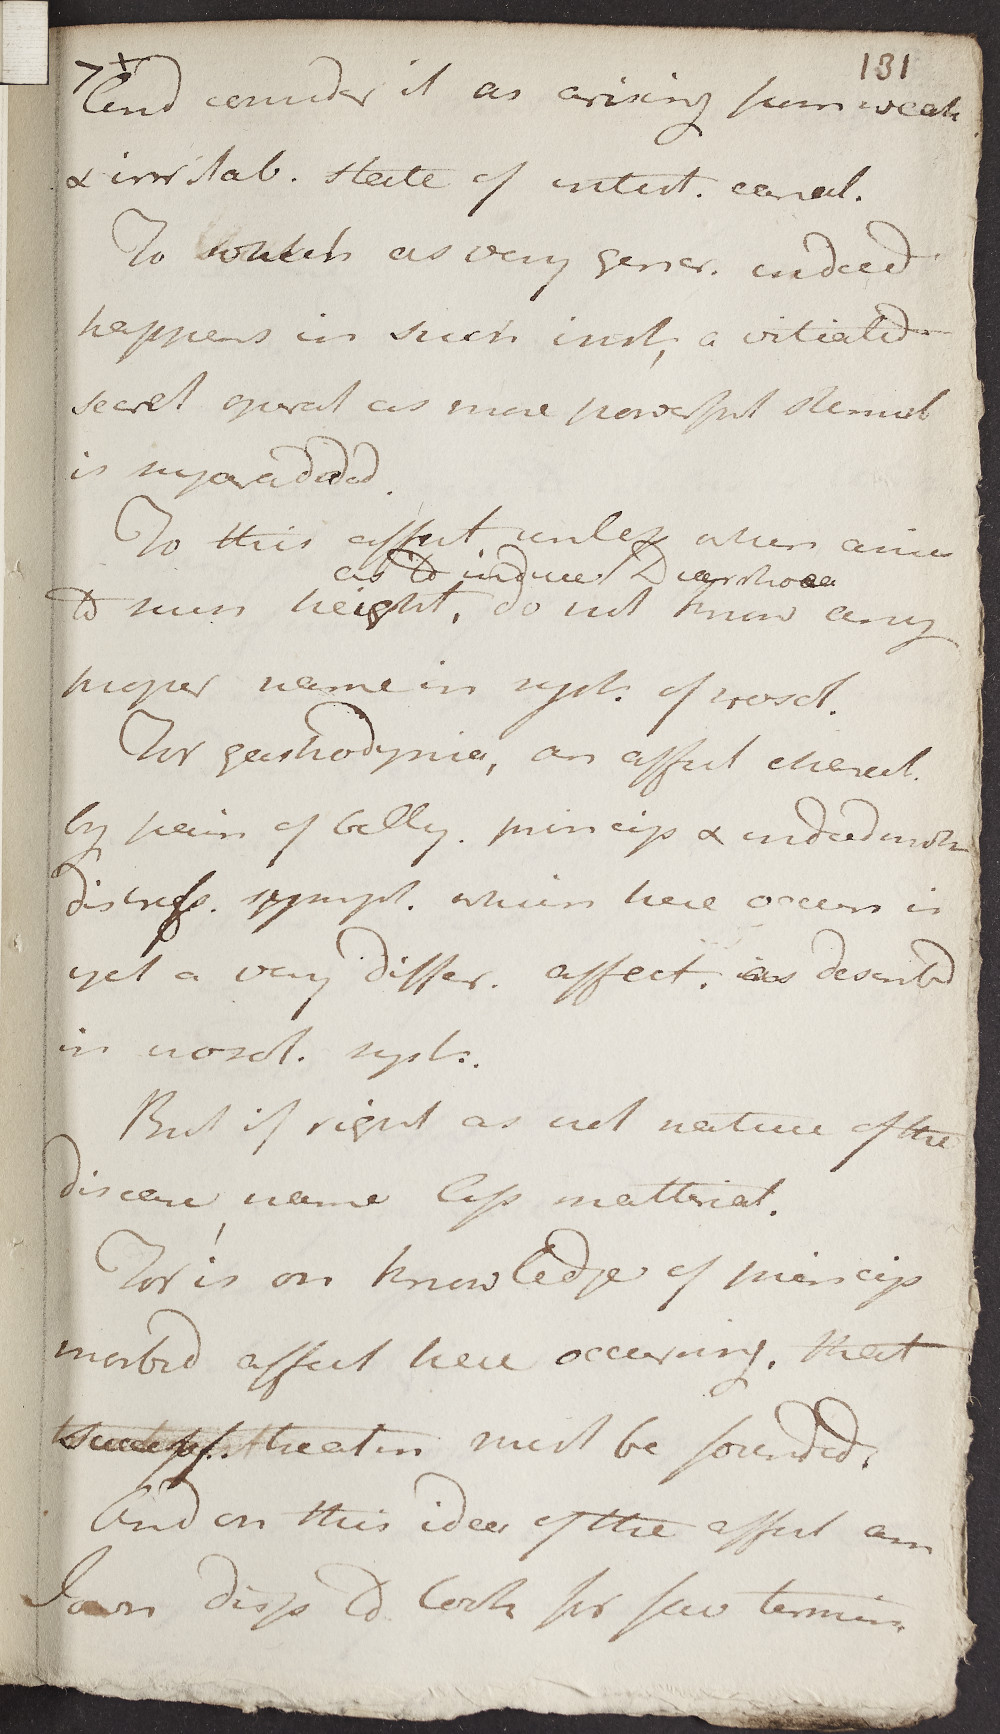 131
7+
And consider it as arising from weak
& irritab. State of intest. canal.
To which as very gener. indeed
happens in such inst, a vitiated
secret operat as more powerful Stimul
is superadded.
To this affect unless when arises
as to induce Diarrhoea
to such height, do not know any
proper name in syst. of nosol.
For gastrodynia, an affect charact.
by pain of belly. princip & indeed most
distress. sympt. which here occurs is
yet a very differ. affect. as describd
in nosol. syst.
But if right as not nature of the
disease name less matterial.
For is on knowledge of princip
morbid affect here occurring. that
success. treatm must be founded.
And on this idea of the affect am
I own disp to look for fav termin.